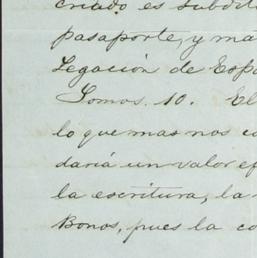 criado es subdit
pasaporte, y ma
Legación de Espa
Somos. 10. El
lo que mas nos c
daría un valor ef
la escritura, la
Bonos, pues la co